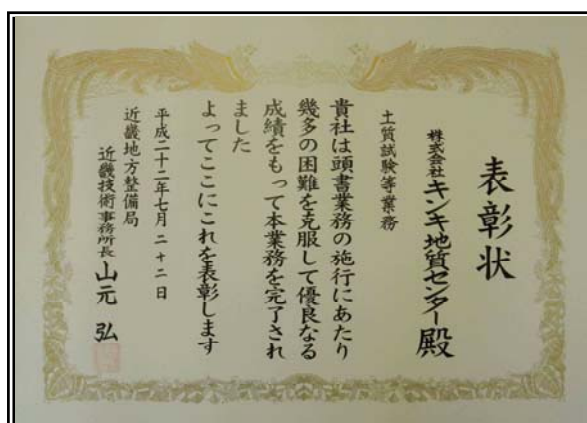 表彰状
株式会社キンキ地質センター殿
土質試験等業務
貴社は頭書業務の施行にあたり
幾多の困難を克服して優良なる
成績をもって本業務を完了され
ました
よってここにこれを表彰します
平成二十二年七月二十二日
近畿地方整備局
近畿技術事務所長 山元 弘